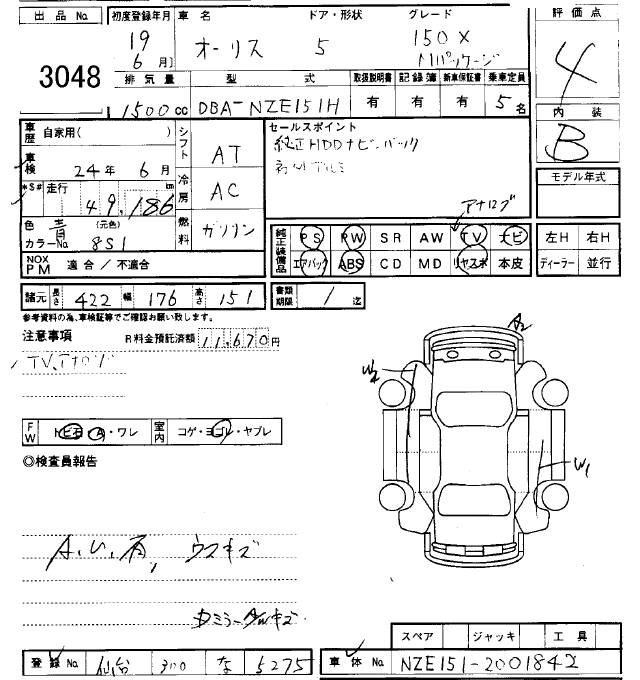 出品No. 3048
初度登録年月 19 6月
車名 オーリス
ドア・形状 5
グレード 150X Mパッケージ
評価点 4
排気量 1500cc
型式 DBA-NZE151H
取扱説明書 有
記録簿 有
新車保証書 有
乗車定員 5名
内装 B
車歴 自家用( )
車検 24年 6月
*S# 走行 49,186 km
色 青 (元色)
カラーNo. 8S1
NOX PM 適合/不適合
シフト AT
冷房 AC
燃料 ガソリン
セールスポイント
純正HDDナビ・バック
アルミ
アナログ
モデル年式
純正装備品 PS PW SR AW TV ナビ
エアバック ABS CD MD リヤスポ 本皮
左H 右H
ディーラー 並行
諸元 長さ 422 幅 176 高さ 151
書類期限 / 迄
参考資料の為、車検証等でご確認お願い致します。
注意事項 R料金預託済額 11,670円
TV.アナログ
FW トビ石 A・ワレ
室内 コゲ・ヨゴレ・ヤブレ
A2
W2
W1
◎検査員報告
A.U.
ウスキズ
スペア ジャッキ 工具
登録No. 仙台 300 な 5275
車体No. NZE151-2001842